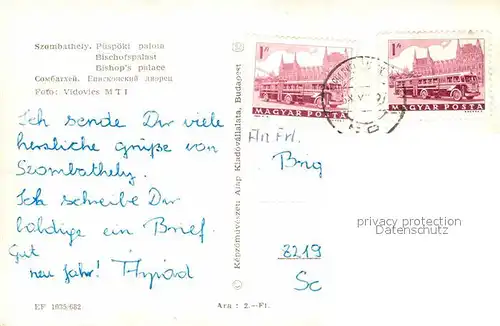 Szombathely. Püspöki palota
Bischofspalast
Bishop's palace
Сомбатхей. Епископский дворец
Foto: Vidovics MTI
Ich sende Dir viele
herzliche grüße von
Szombathely.
Ich schreibe Dir
baldige ein Brief.
Gut
neu Jahr! Árpád
EF 1635/682
Ára: 2.-Ft.
Képzőművészeti Alap Kiadóvállalata, Budapest
1Ft
MAGYAR POSTA
1Ft
MAGYAR POSTA
An Frl.
Brig
8219
Sc
privacy protection
Datenschutz